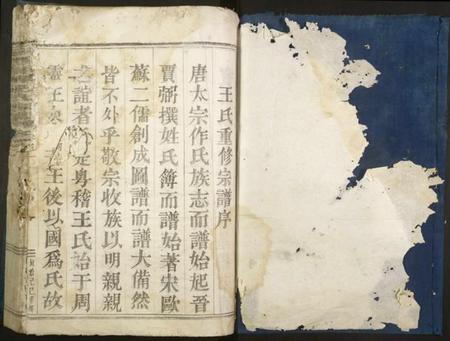 王氏重修宗譜序
唐太宗作氏族志而譜始起晉
賈弼撰姓氏簿而譜始著宋歐
蘇二儒創成圖譜而譜大備然
皆不外乎敬宗收族以明親親
之誼者 是身稽王氏始于周
靈王 王後以國爲氏故